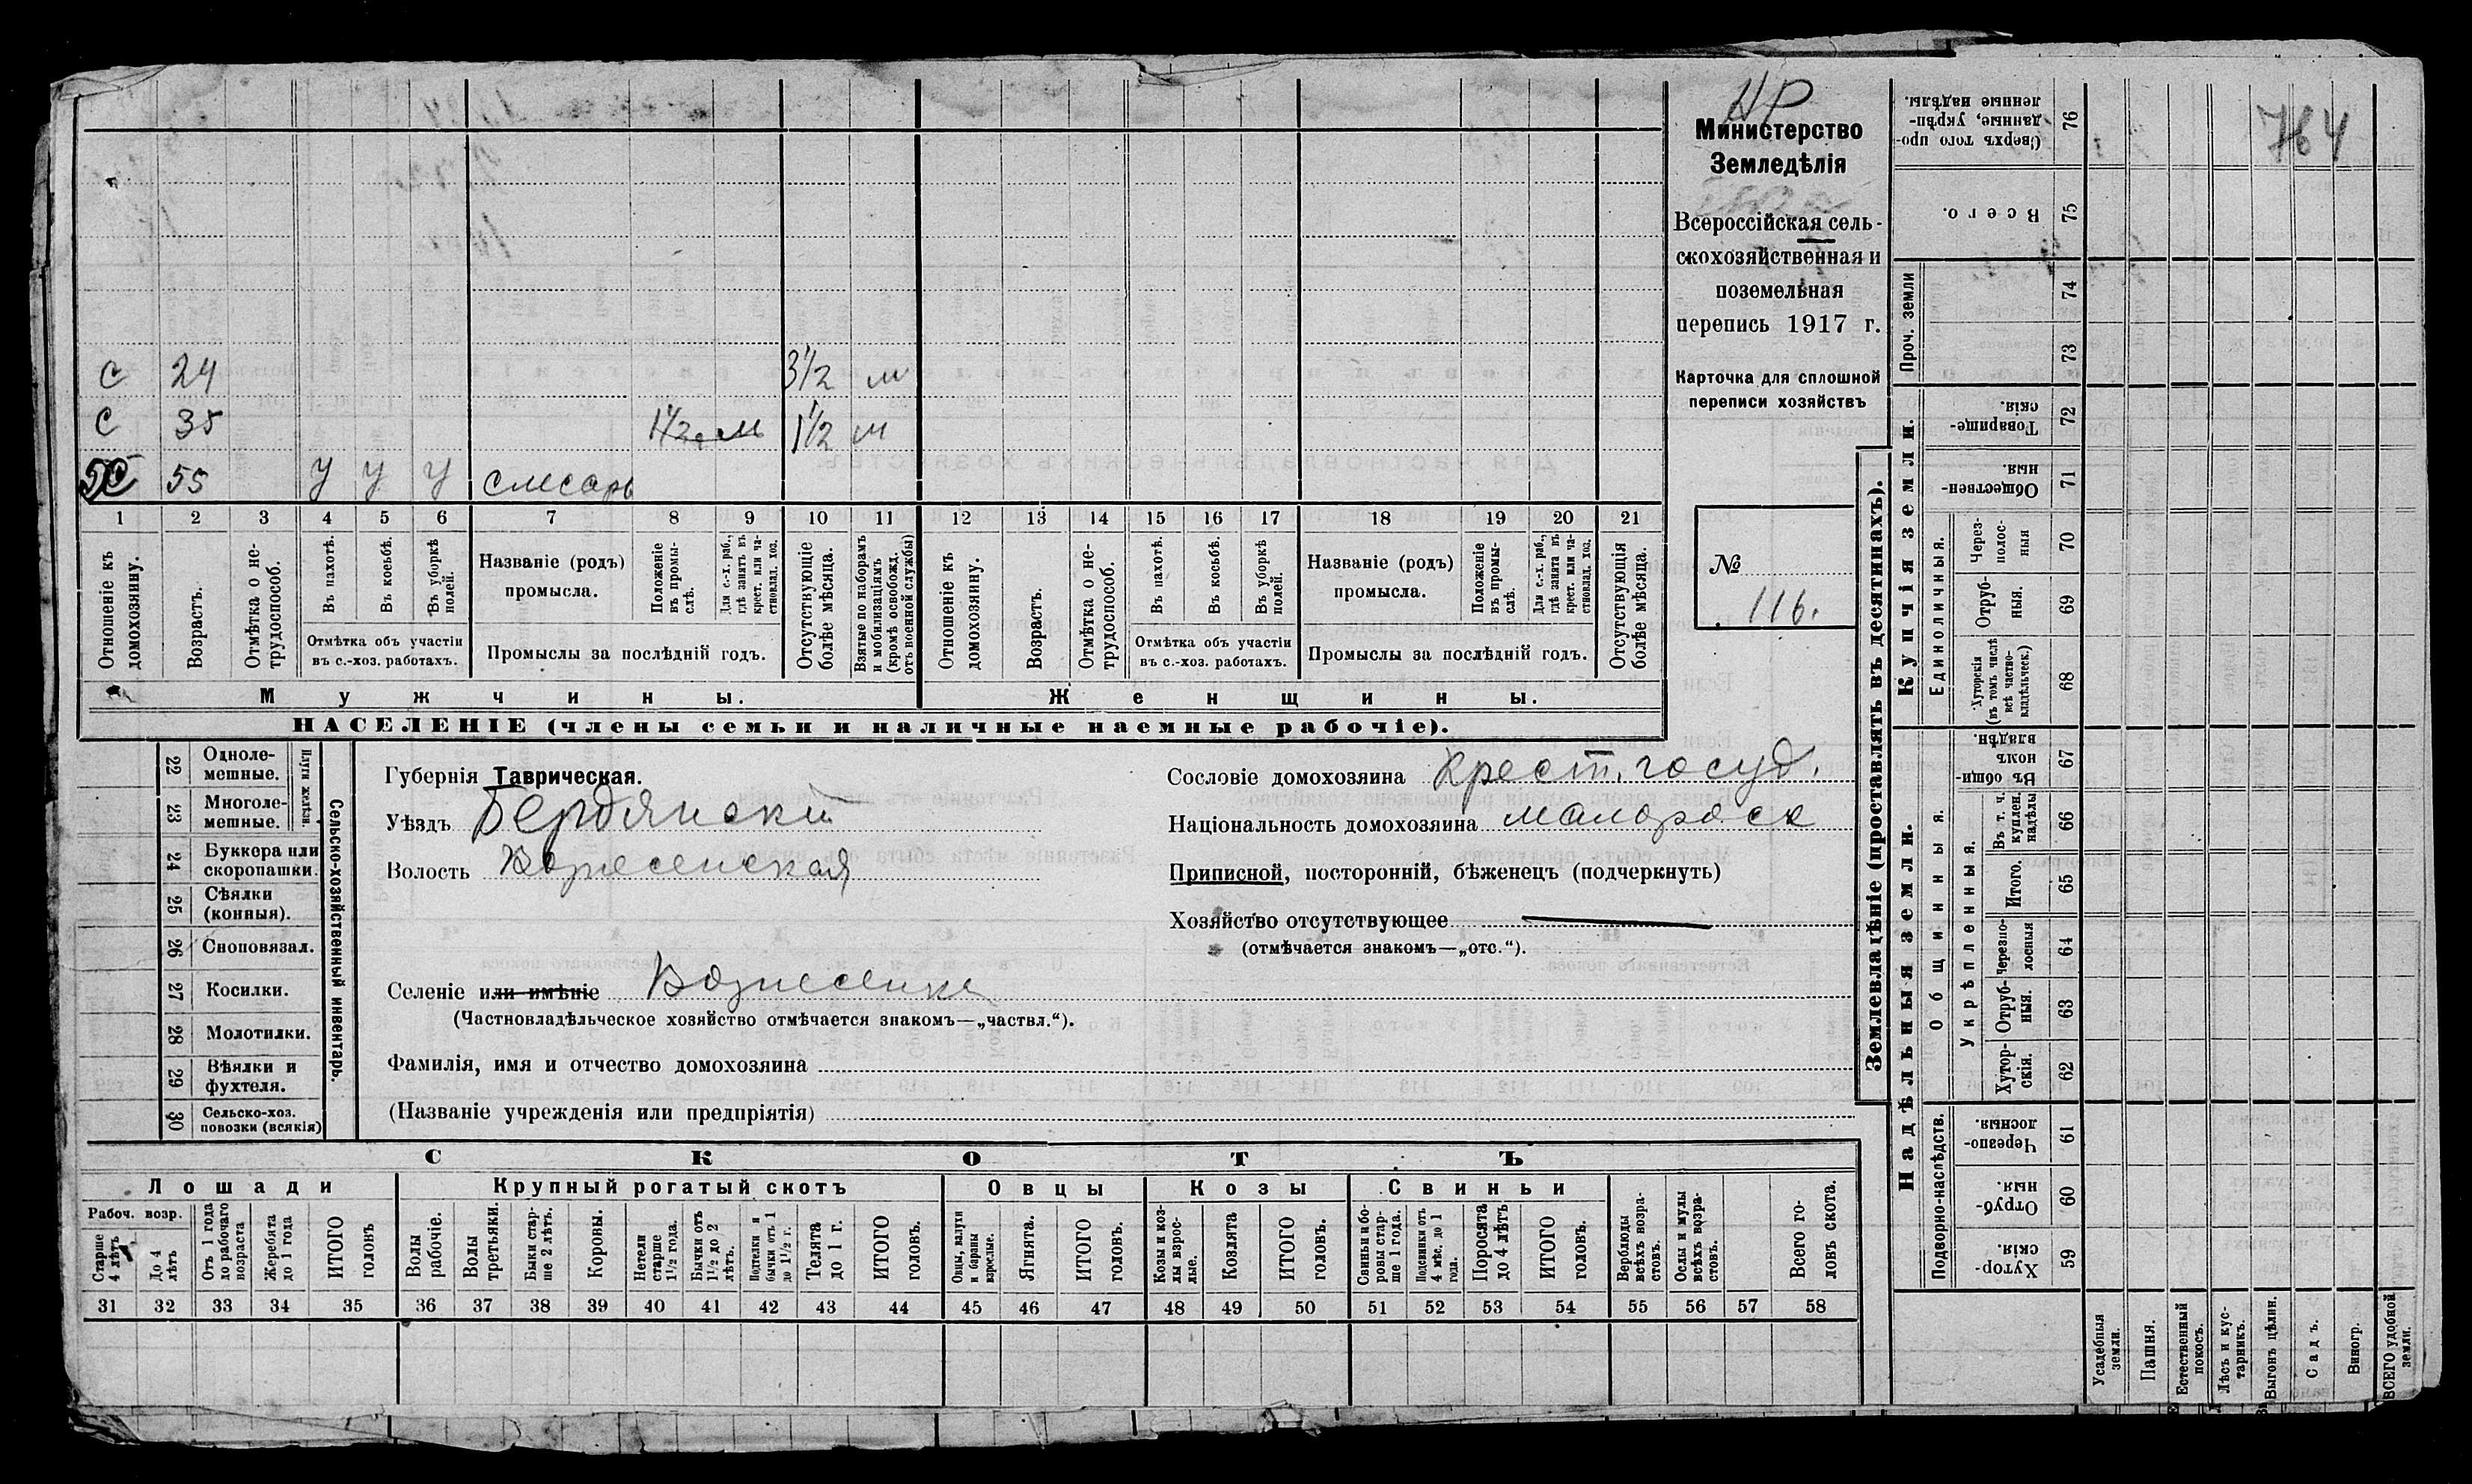 НР
Министерство
Земледѣлія
Всероссійская сель-
скохозяйственная и
поземельная
перепись 1917 г.
Карточка для сплошной
переписи хозяйствъ
№
116.
764
С 24 3½ м
С 35 1½ м 1½ м
55 У У У слесарь
1 2 3 4 5 6 7 8 9 10 11 12 13 14 15 16 17 18 19 20 21
Отношеніе къ домохозяину.
Возрастъ.
Отмѣтка о не-трудоспособ.
Въ пахотѣ.
Въ косьбѣ.
Въ уборкѣ полей.
Отмѣтка объ участіи
въ с.-хоз. работахъ.
Названіе (родъ)
промысла.
Положеніе въ промы-слѣ.
Для с.-х. раб., гдѣ занятъ въ крест. или ча-стновлад. хоз.
Промыслы за послѣдній годъ.
Отсутствующіе болѣе мѣсяца.
Взятые по наборамъ и мобилизаціямъ (кромѣ освобожд. отъ военной службы)
Отношеніе къ домохозяину.
Возрастъ.
Отмѣтка о не-трудоспособ.
Въ пахотѣ.
Въ косьбѣ.
Въ уборкѣ полей.
Отмѣтка объ участіи
въ с.-хоз. работахъ.
Названіе (родъ)
промысла.
Положеніе въ промы-слѣ.
Для с.-х. раб., гдѣ занята въ крест. или ча-стновлад. хоз.
Промыслы за послѣдній годъ.
Отсутствующія болѣе мѣсяца.
Мужчины.
Женщины.
НАСЕЛЕНІЕ (члены семьи и наличные наемные рабочіе).
22 Одноле-мешные.
23 Многоле-мешные.
Плуги желѣзн.
24 Буккера или скоропашки.
25 Сѣялки (конныя).
26 Сноповязал.
27 Косилки.
28 Молотилки.
29 Вѣялки и фухтеля.
30 Сельско-хоз. повозки (всякія)
Сельско-хозяйственный инвентарь.
Губернія Таврическая.
Уѣздъ Бердянский
Волость Вознесенская
Сословіе домохозяина Крест. госуд.
Національность домохозяина малоросс
Приписной, посторонній, бѣженецъ (подчеркнуть)
Хозяйство отсутствующее
(отмѣчается знакомъ—„отс.“).
Селеніе или имѣніе Вознесенка
(Частновладѣльческое хозяйство отмѣчается знакомъ—„частвл.“).
Фамилія, имя и отчество домохозяина
(Названіе учрежденія или предпріятія)
СКОТЪ
Лошади
Крупный рогатый скотъ
Овцы
Козы
Свиньи
Рабоч. возр.
Старше 4 лѣтъ
До 4 лѣтъ
Отъ 1 года до рабочаго возраста
Жеребята до 1 года
ИТОГО головъ
Волы рабочіе.
Волы третьяки.
Быки стар-ше 2 лѣтъ.
Коровы.
Нетели старше 1½ года.
Бычки отъ 1½ до 2 лѣтъ.
Подтелки и бычки отъ 1 до 1½ г.
Телята до 1 г.
ИТОГО головъ.
Овцы, валухи и бараны взрослые.
Ягнята.
ИТОГО головъ.
Козы и коз-лы взрос-лые.
Козлята
ИТОГО головъ.
Свиньи и бо-ровы стар-ше 1 года.
Подсвинки отъ 4 мѣс. до 1 года.
Поросята до 4 лѣтъ
ИТОГО головъ.
Верблюды всѣхъ возра-стовъ.
Ослы и мулы всѣхъ возра-стовъ.
Всего го-ловъ скота.
31 32 33 34 35 36 37 38 39 40 41 42 43 44 45 46 47 48 49 50 51 52 53 54 55 56 57 58
Землевладѣніе (проставлять въ десятинахъ).
Надѣльныя земли.
Купчія земли.
Проч. земли
Подворно-наслѣдств.
Общинныя.
Укрѣпленныя.
Единоличныя.
Сверхъ того про-данные, укрѣп-ленные надѣлы. 76
Всего. 75
74
73
Товарище-скія. 72
Обществен-ныя. 71
Через-полос-ныя 70
Отруб-ныя. 69
Хуторскія (въ томъ числѣ всѣ частно-владѣльческ.) 68
Въ общи-номъ владѣн. 67
Въ т. ч. куплен. надѣлы 66
Итого. 65
Черезпо-лосныя 64
Отруб-ныя. 63
Хутор-скія. 62
Черезпо-лосныя. 61
Отруб-ныя. 60
Хутор-скія. 59
Усадебныя земли.
Пашня.
Естественный покосъ.
Лѣсъ и кус-тарникъ.
Выгонъ цѣлин.
Садъ.
Виногр.
ВСЕГО удобной земли.